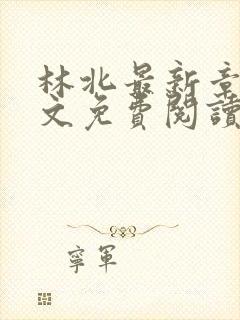 林北最新章
文免費閱讀
寧軍